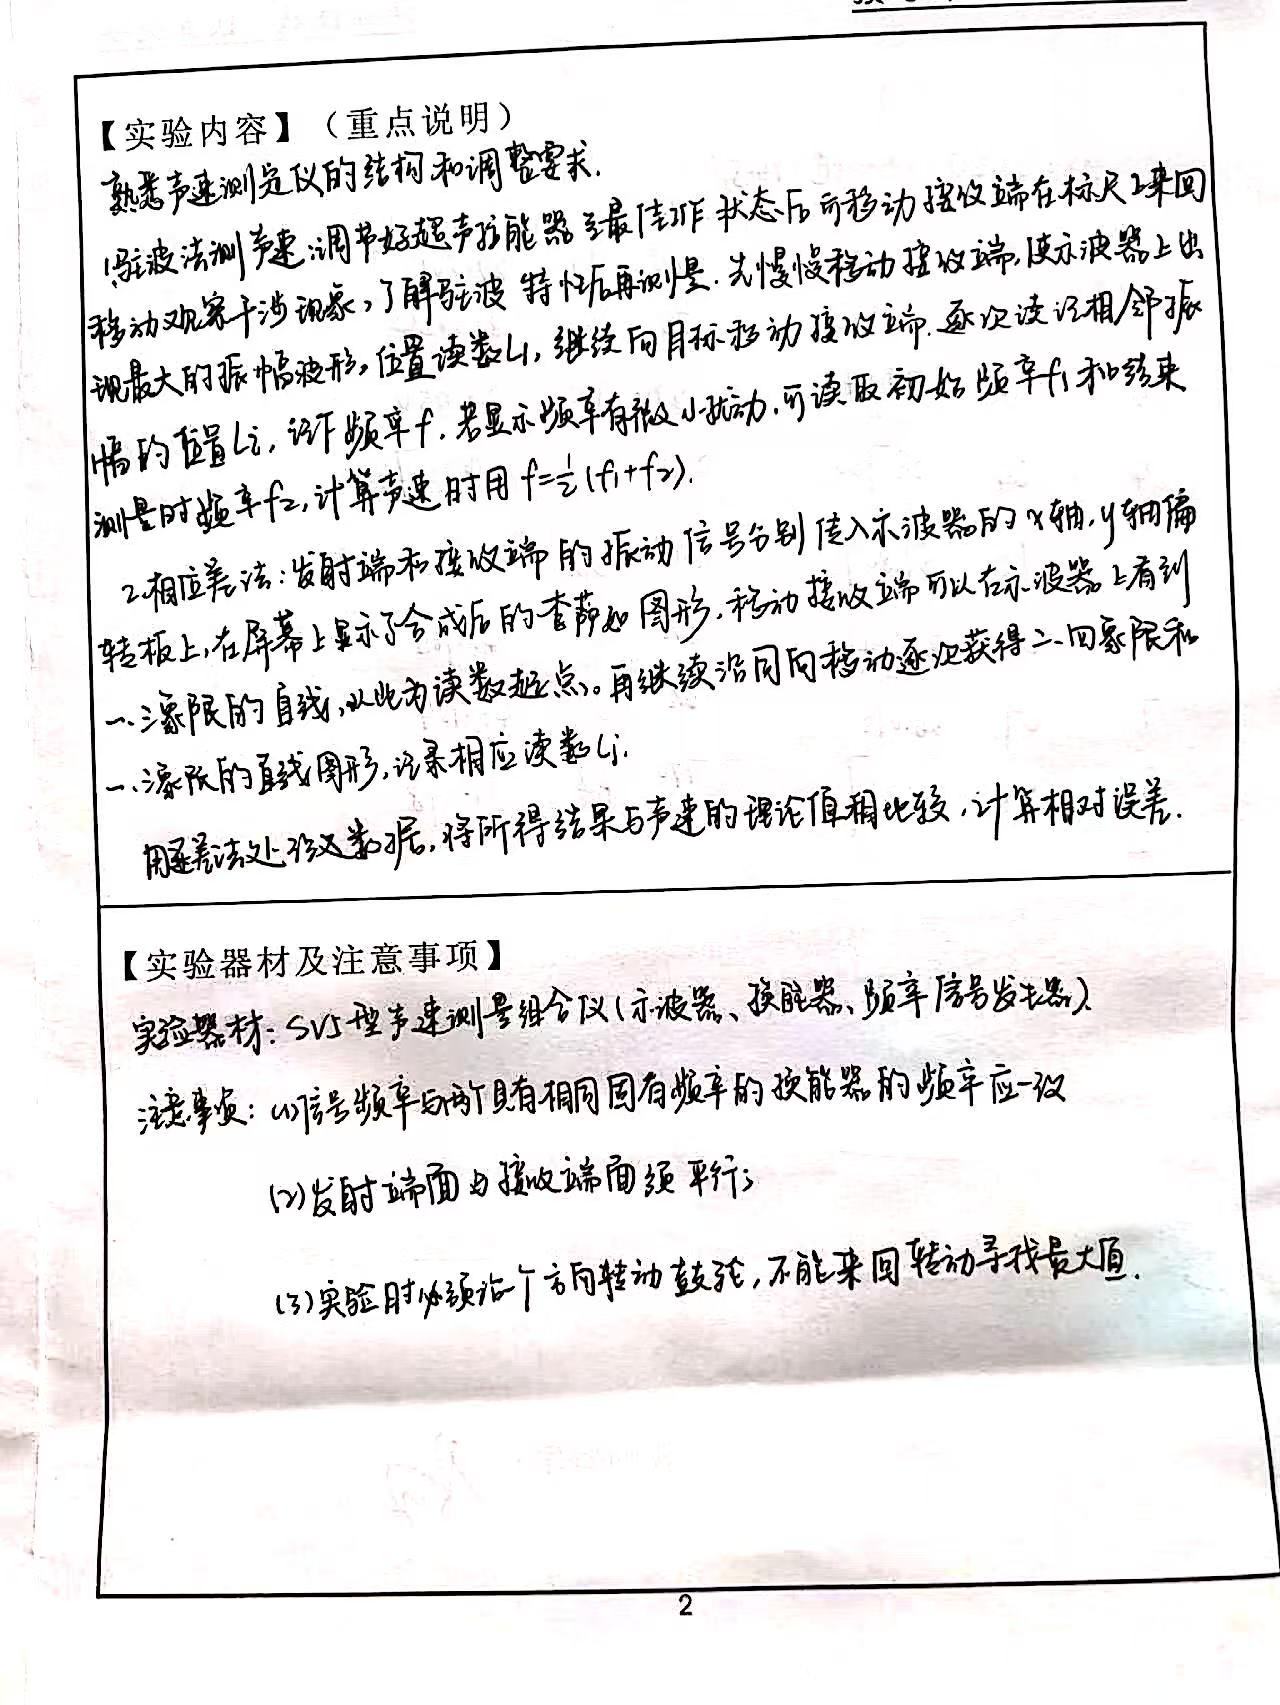 【实验内容】（重点说明）
熟悉声速测定仪的结构和调整要求.
1.驻波法测声速:调节好超声换能器至最佳工作状态后可移动接收端在标尺上来回
移动观察干涉现象,了解驻波特性后再测量.先慢慢移动接收端,使示波器上出
现最大的振幅波形,位置读数L1,继续向目标移动接收端.逐次读记相邻振
幅的位置Li,记下频率f.若显示频率有微小扰动,可读取初始频率f1和结束
测量时频率f2,计算声速时用f=1/2(f1+f2).
2.相位差法:发射端和接收端的振动信号分别传入示波器的x轴,y轴偏
转板上,在屏幕上显示了合成后的李萨如图形,移动接收端可以在示波器上看到
一、三象限的直线,以此为读数起点。再继续沿同向移动逐次获得二、四象限和
一、三象限的直线图形,记录相应读数Li.
用逐差法处理数据,将所得结果与声速的理论值相比较,计算相对误差.
【实验器材及注意事项】
实验器材:SV5型声速测量组合仪(示波器、换能器、频率信号发生器).
注意事项:(1)信号频率与两个具有相同固有频率的换能器的频率应一致
(2)发射端面与接收端面须平行;
(3)实验时必须沿个方向转动鼓轮,不能来回转动寻找最大值.
2